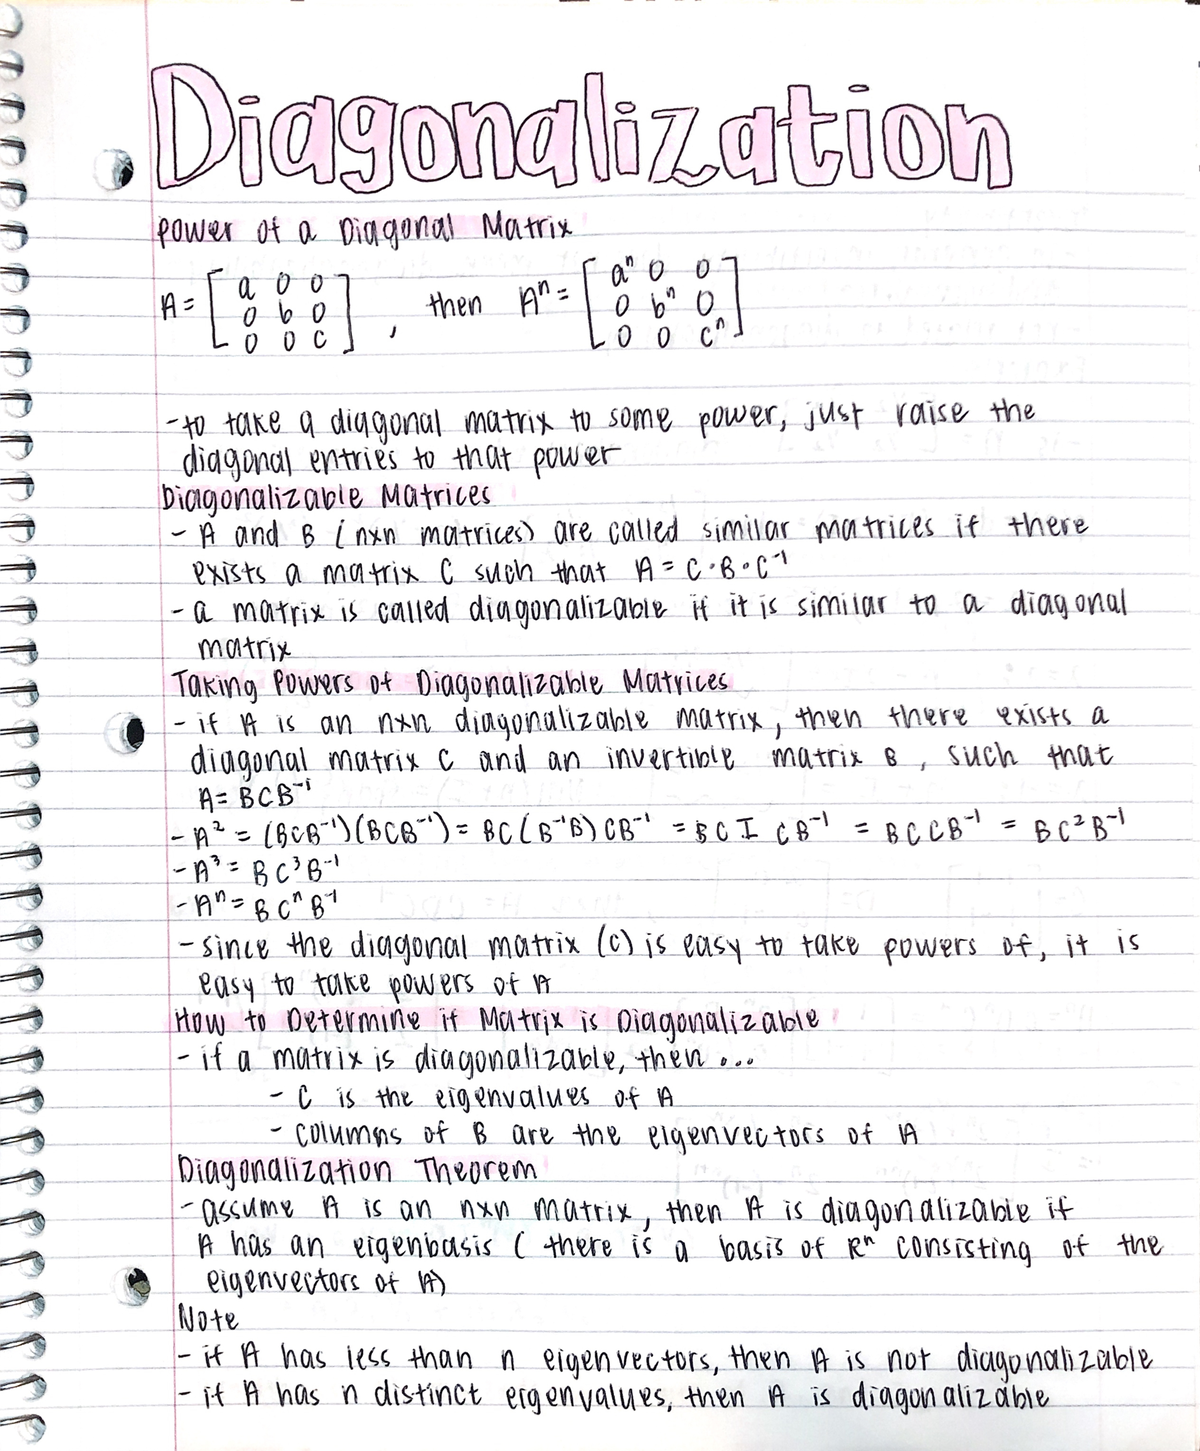 Diagonalization
Power of a Diagonal Matrix
A = [a 0 0; 0 b 0; 0 0 c], then Aⁿ = [aⁿ 0 0; 0 bⁿ 0; 0 0 cⁿ]
- to take a diagonal matrix to some power, just raise the
diagonal entries to that power
Diagonalizable Matrices
- A and B (nxn matrices) are called similar matrices if there
exists a matrix C such that A = C·B·C⁻¹
- a matrix is called diagonalizable if it is similar to a diagonal
matrix
Taking Powers of Diagonalizable Matrices
- if A is an nxn diagonalizable matrix, then there exists a
diagonal matrix C and an invertible matrix B, such that
A = BCB⁻¹
- A² = (BCB⁻¹)(BCB⁻¹) = BC(B⁻¹B)CB⁻¹ = BCICB⁻¹ = BCCB⁻¹ = BC²B⁻¹
- A³ = BC³B⁻¹
- Aⁿ = BCⁿB⁻¹
- since the diagonal matrix (C) is easy to take powers of, it is
easy to take powers of A
How to Determine if Matrix is Diagonalizable
- if a matrix is diagonalizable, then ...
- C is the eigenvalues of A
- columns of B are the eigenvectors of A
Diagonalization Theorem
- assume A is an nxn matrix, then A is diagonalizable if
A has an eigenbasis (there is a basis of Rⁿ consisting of the
eigenvectors of A)
Note
- if A has less than n eigenvectors, then A is not diagonalizable
- if A has n distinct eigenvalues, then A is diagonalizable